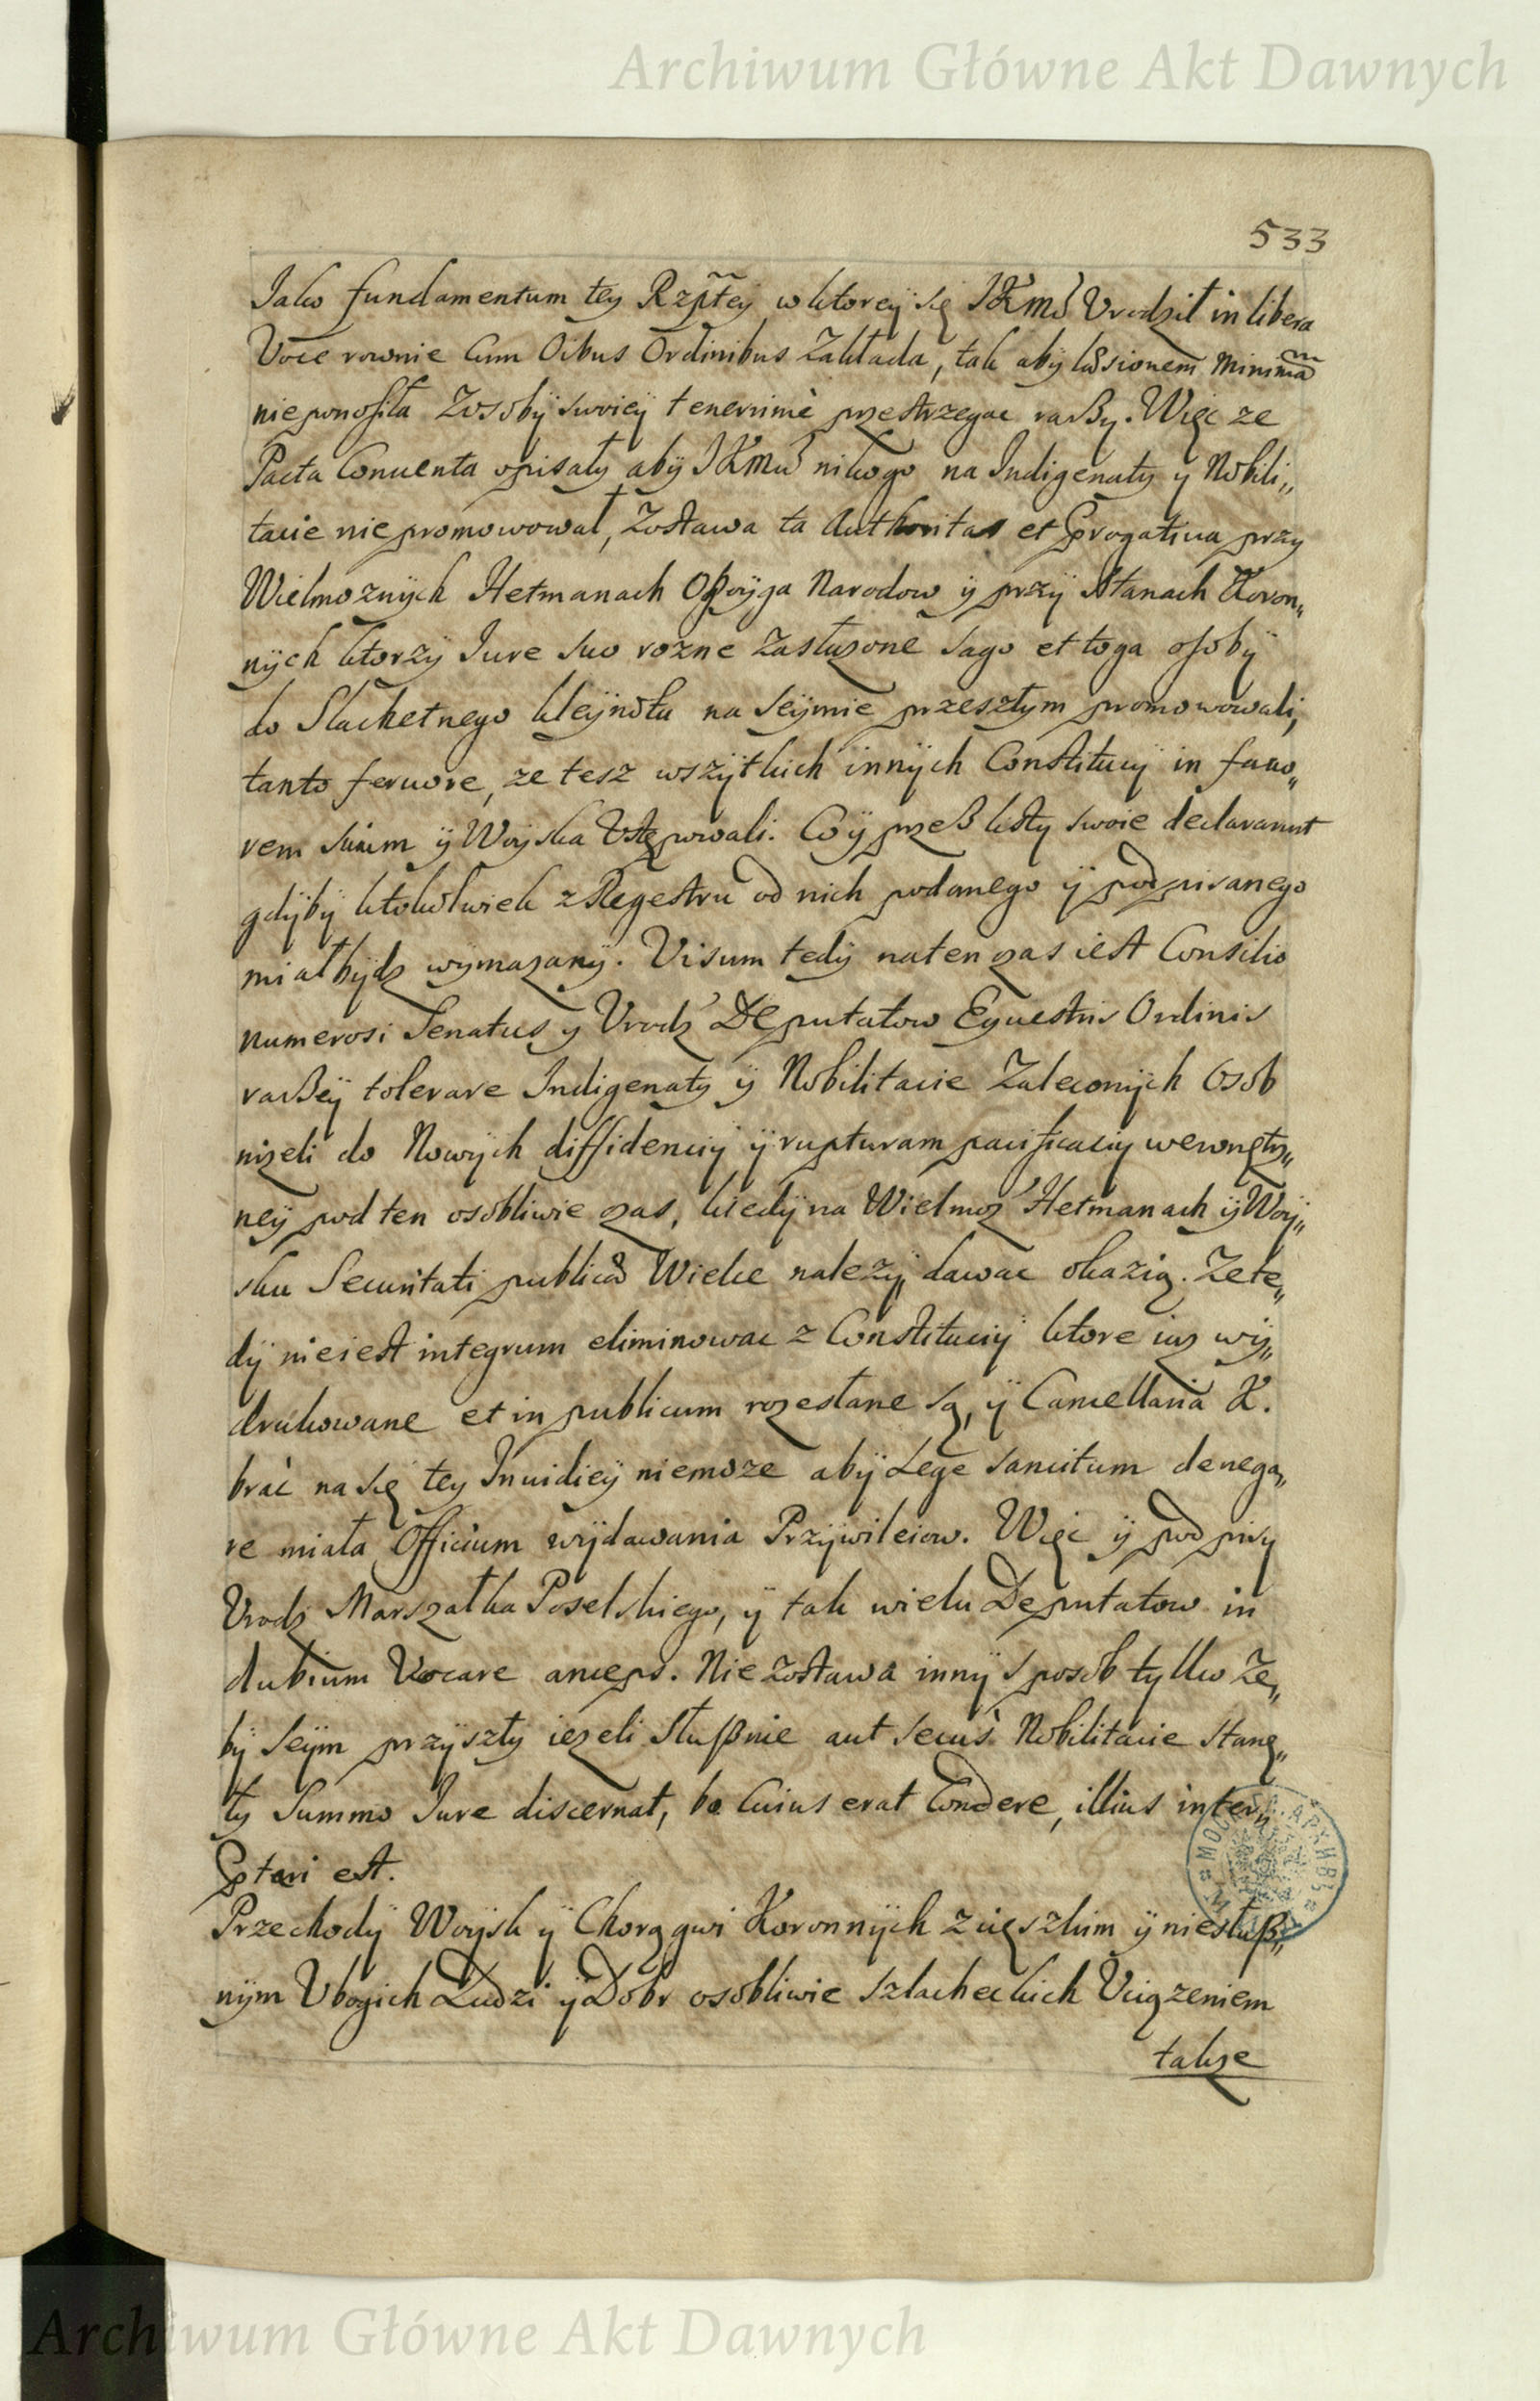 Archiwum Główne Akt Dawnych
533
Iako fundamentum tey Rzptey, w ktorey się JKMć Vrodził in libera
Voce rownie Cum Oibus Ordinibus Zakłada, tak aby læsionem minimam
nieponosiła Zosoby swoiey tenerrime przestrzegac raczy. Więc ze
Pacta Conuenta opisały aby JKMć nikogo na Indigenaty y Nobili„
tacie niepromowował, Zostawa ta Authoritas et Prrogatiua przy
Wielmoznych Hetmanach Oboyga Narodow y przy Stanach Koron„
nych ktorzy Iure suo rozne Zasłuzone sago et toga osoby
do Slachetnego kleynotu na Seymie przeszłym promowowali,
tanto feruore, ze tesz wszytkich innych Constitucy in fauo„
rem suum y Woyska Vstępowali. Co y przeß listy swoie declararunt
gdyby ktokolwiek z Regestru od nich podanego y podpisanego
miał bydz wymazany. Visum tedy natenczas iest Consilio
numerosi Senatus y Vrodz Deputatow Equestris Ordinis
raczey tolerare Indigenaty y Nobilitacie Zaleconych Osob
nizeli do Nowych diffidenciy y rupturam pacificaciy wewnętrz„
ney pod ten osobliwie czas, kiedy na Wielmoz Hetmanach y Woy„
sku Securitati publicæ Wielce nalezy, dawac okazią. Ze te„
dy nieiest integrum eliminowac z Constituciy ktore iuz wy„
drukowane et in publicum rozesłane są, y Cancellaria K.
brać na się tey Inuidiey niemoze aby Lege sancitum denega„
re miała Officium wydawania Przywileiow. Więc y podpisy
Vrodz Marszałka Poselskiego, y tak wielu Deputatow in
dubium Vocare anceps. Nie Zostawa inny sposob tylko Ze„
by Seym przyszły iezeli słußnie aut secus Nobilitacie stanę„
ły Summo Iure discernat, bo Cuius erat Condere, illius inter„
prtari est.
Przechody Woysk y Chorągwi Koronnych z cięszkim y niesłuß„
nym Vbogich Ludzi y Dobr osobliwie szlacheckich Vciązeniem
takze
Archiwum Główne Akt Dawnych